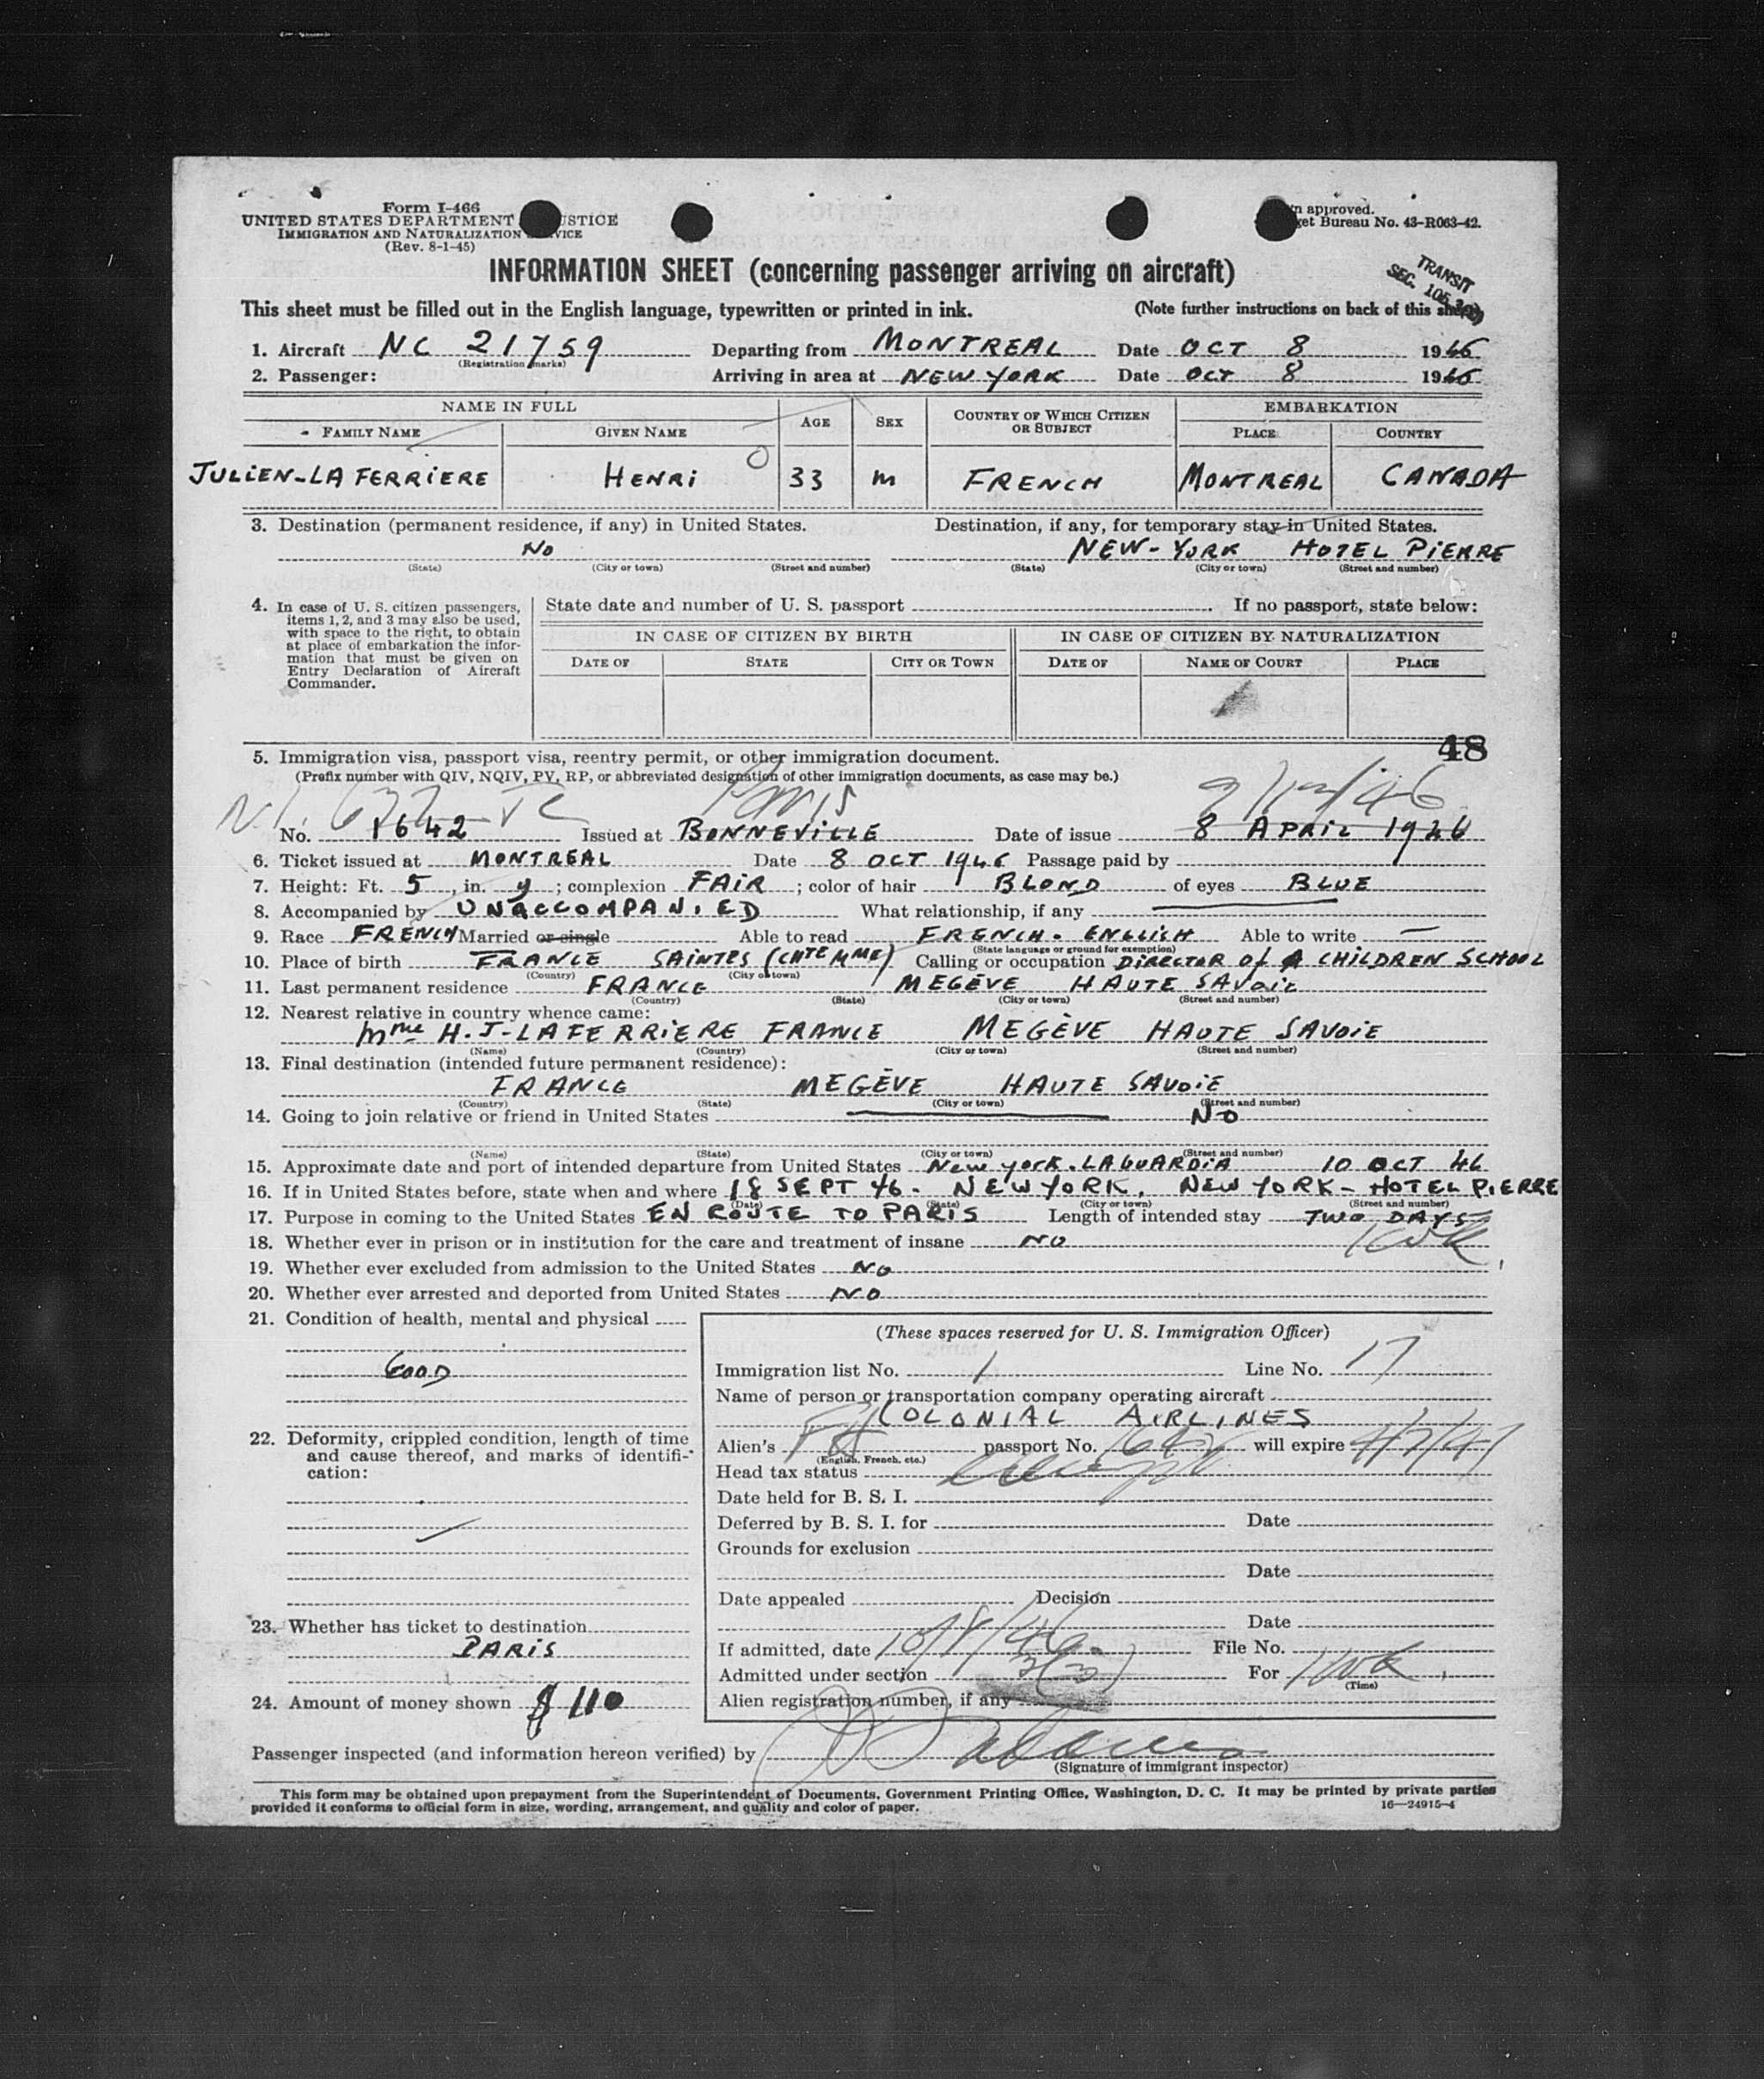 Form I-466
UNITED STATES DEPARTMENT USTICE
IMMIGRATION AND NATURALIZATION VICE
(Rev. 8-1-45)
n approved.
get Bureau No. 43-R063-42.
INFORMATION SHEET (concerning passenger arriving on aircraft)
TRANSIT
SEC. 105.3
This sheet must be filled out in the English language, typewritten or printed in ink. (Note further instructions on back of this sheet)
1. Aircraft NC 21759 Departing from MONTREAL Date OCT 8 1946
(Registration marks)
2. Passenger: Arriving in area at NEW YORK Date OCT 8 1946
NAME IN FULL AGE SEX COUNTRY OF WHICH CITIZEN OR SUBJECT EMBARKATION
FAMILY NAME GIVEN NAME PLACE COUNTRY
JULIEN-LAFERRIERE HENRI 33 M FRENCH MONTREAL CANADA
3. Destination (permanent residence, if any) in United States. Destination, if any, for temporary stay in United States.
NO NEW-YORK HOTEL PIERRE
(State) (City or town) (Street and number) (State) (City or town) (Street and number)
4. In case of U. S. citizen passengers, items 1, 2, and 3 may also be used, with space to the right, to obtain at place of embarkation the information that must be given on Entry Declaration of Aircraft Commander.
State date and number of U. S. passport If no passport, state below:
IN CASE OF CITIZEN BY BIRTH IN CASE OF CITIZEN BY NATURALIZATION
DATE OF STATE CITY OR TOWN DATE OF NAME OF COURT PLACE
48
5. Immigration visa, passport visa, reentry permit, or other immigration document.
(Prefix number with QIV, NQIV, PV, RP, or abbreviated designation of other immigration documents, as case may be.)
Paris
No. 1642 Issued at BONNEVILLE Date of issue 8 APRIL 1946
6. Ticket issued at MONTREAL Date 8 OCT 1946 Passage paid by
7. Height: Ft. 5, in. 4; complexion FAIR; color of hair BLOND of eyes BLUE
8. Accompanied by UNACCOMPANIED What relationship, if any —
9. Race FRENCH Married or single Able to read FRENCH. ENGLISH Able to write —
(State language or ground for exemption)
10. Place of birth FRANCE SAINTES (CHTE MME) Calling or occupation DIRECTOR of A CHILDREN SCHOOL
(Country) (City or town)
11. Last permanent residence FRANCE MEGÈVE HAUTE SAVOIE
(Country) (State) (City or town) (Street and number)
12. Nearest relative in country whence came:
Mme H. J-LAFERRIERE FRANCE MEGÈVE HAUTE SAVOIE
(Name) (Country) (City or town) (Street and number)
13. Final destination (intended future permanent residence):
FRANCE MEGÈVE HAUTE SAVOIE
(Country) (State) (City or town) (Street and number)
14. Going to join relative or friend in United States NO
(Name) (State) (City or town) (Street and number)
15. Approximate date and port of intended departure from United States New York. LAGUARDIA 10 OCT 46
16. If in United States before, state when and where 18 SEPT 46. NEW YORK. NEW YORK - HOTEL PIERRE
(Date) (State) (City or town) (Street and number)
17. Purpose in coming to the United States EN ROUTE TO PARIS Length of intended stay TWO DAYS
1 wk
18. Whether ever in prison or in institution for the care and treatment of insane NO
19. Whether ever excluded from admission to the United States NO
20. Whether ever arrested and deported from United States NO
21. Condition of health, mental and physical
GOOD
22. Deformity, crippled condition, length of time and cause thereof, and marks of identification:
—
23. Whether has ticket to destination
PARIS
24. Amount of money shown $ 110
(These spaces reserved for U. S. Immigration Officer)
Immigration list No. 1 Line No. 17
Name of person or transportation company operating aircraft
COLONIAL AIRLINES
Alien's Fr passport No. 1642 will expire 4/7/47
(English, French, etc.)
Head tax status
Date held for B. S. I.
Deferred by B. S. I. for Date
Grounds for exclusion
Date
Date appealed Decision
Date
If admitted, date 10/8/46 File No.
Admitted under section 3(3) For 1 wk
(Time)
Alien registration number, if any
Passenger inspected (and information hereon verified) by
(Signature of immigrant inspector)
This form may be obtained upon prepayment from the Superintendent of Documents, Government Printing Office, Washington, D. C. It may be printed by private parties
provided it conforms to official form in size, wording, arrangement, and quality and color of paper. 16—24915-4